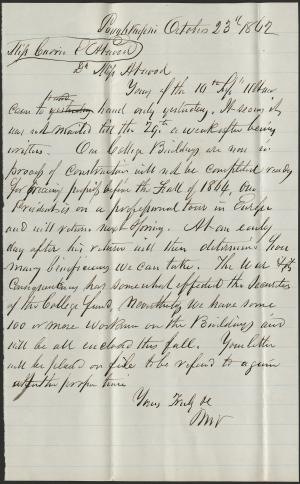 Poughkeepsie October 23rd 1862
Miss Carrie E Atwood
Dr Miss Atwood
Yours of the 16th Ap
came to hand only yesterday. It seems it
was not mailed till the 29th a week after being
written. Our College Buildings are now in
process of Construction will not be completed ready
for receiving pupils before the Fall of 1864, Our
President is on a professional tour in Europe
and will return next Spring. At an early
day after his return will then determine how
many beneficiaries we can take. The War & its
Consequences has somewhat effected the Securities
of the College fund, Nevertheless we have some
100 or more workmen on the Buildings and
will be all enclosed this fall. Your letter
will be placed on file to be referd to again
at the proper time
Yours Truly &c
MV